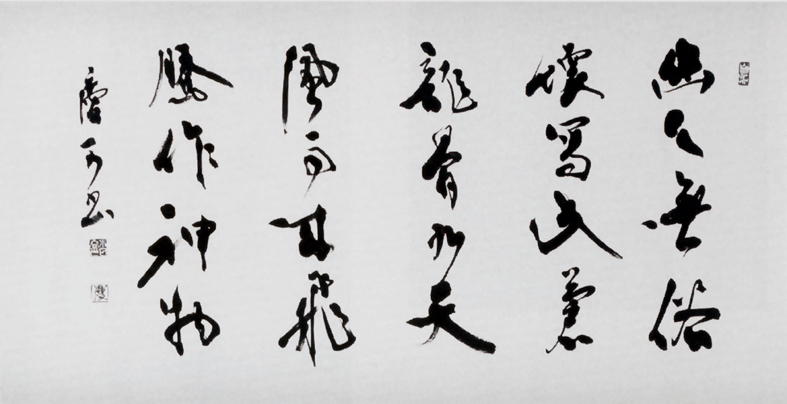 幽人無俗
懷寫此蒼
龍骨九天
風雨來飛
騰作神物
書